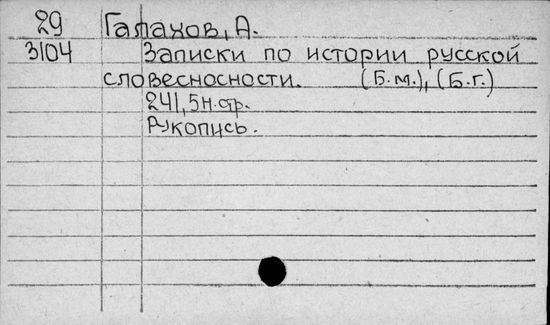 29 Галахов, А.
3104 Записки по истории русской
словесносности. (Б.м.), (Б.г.)
241, 5н. стр.
Рукопись.